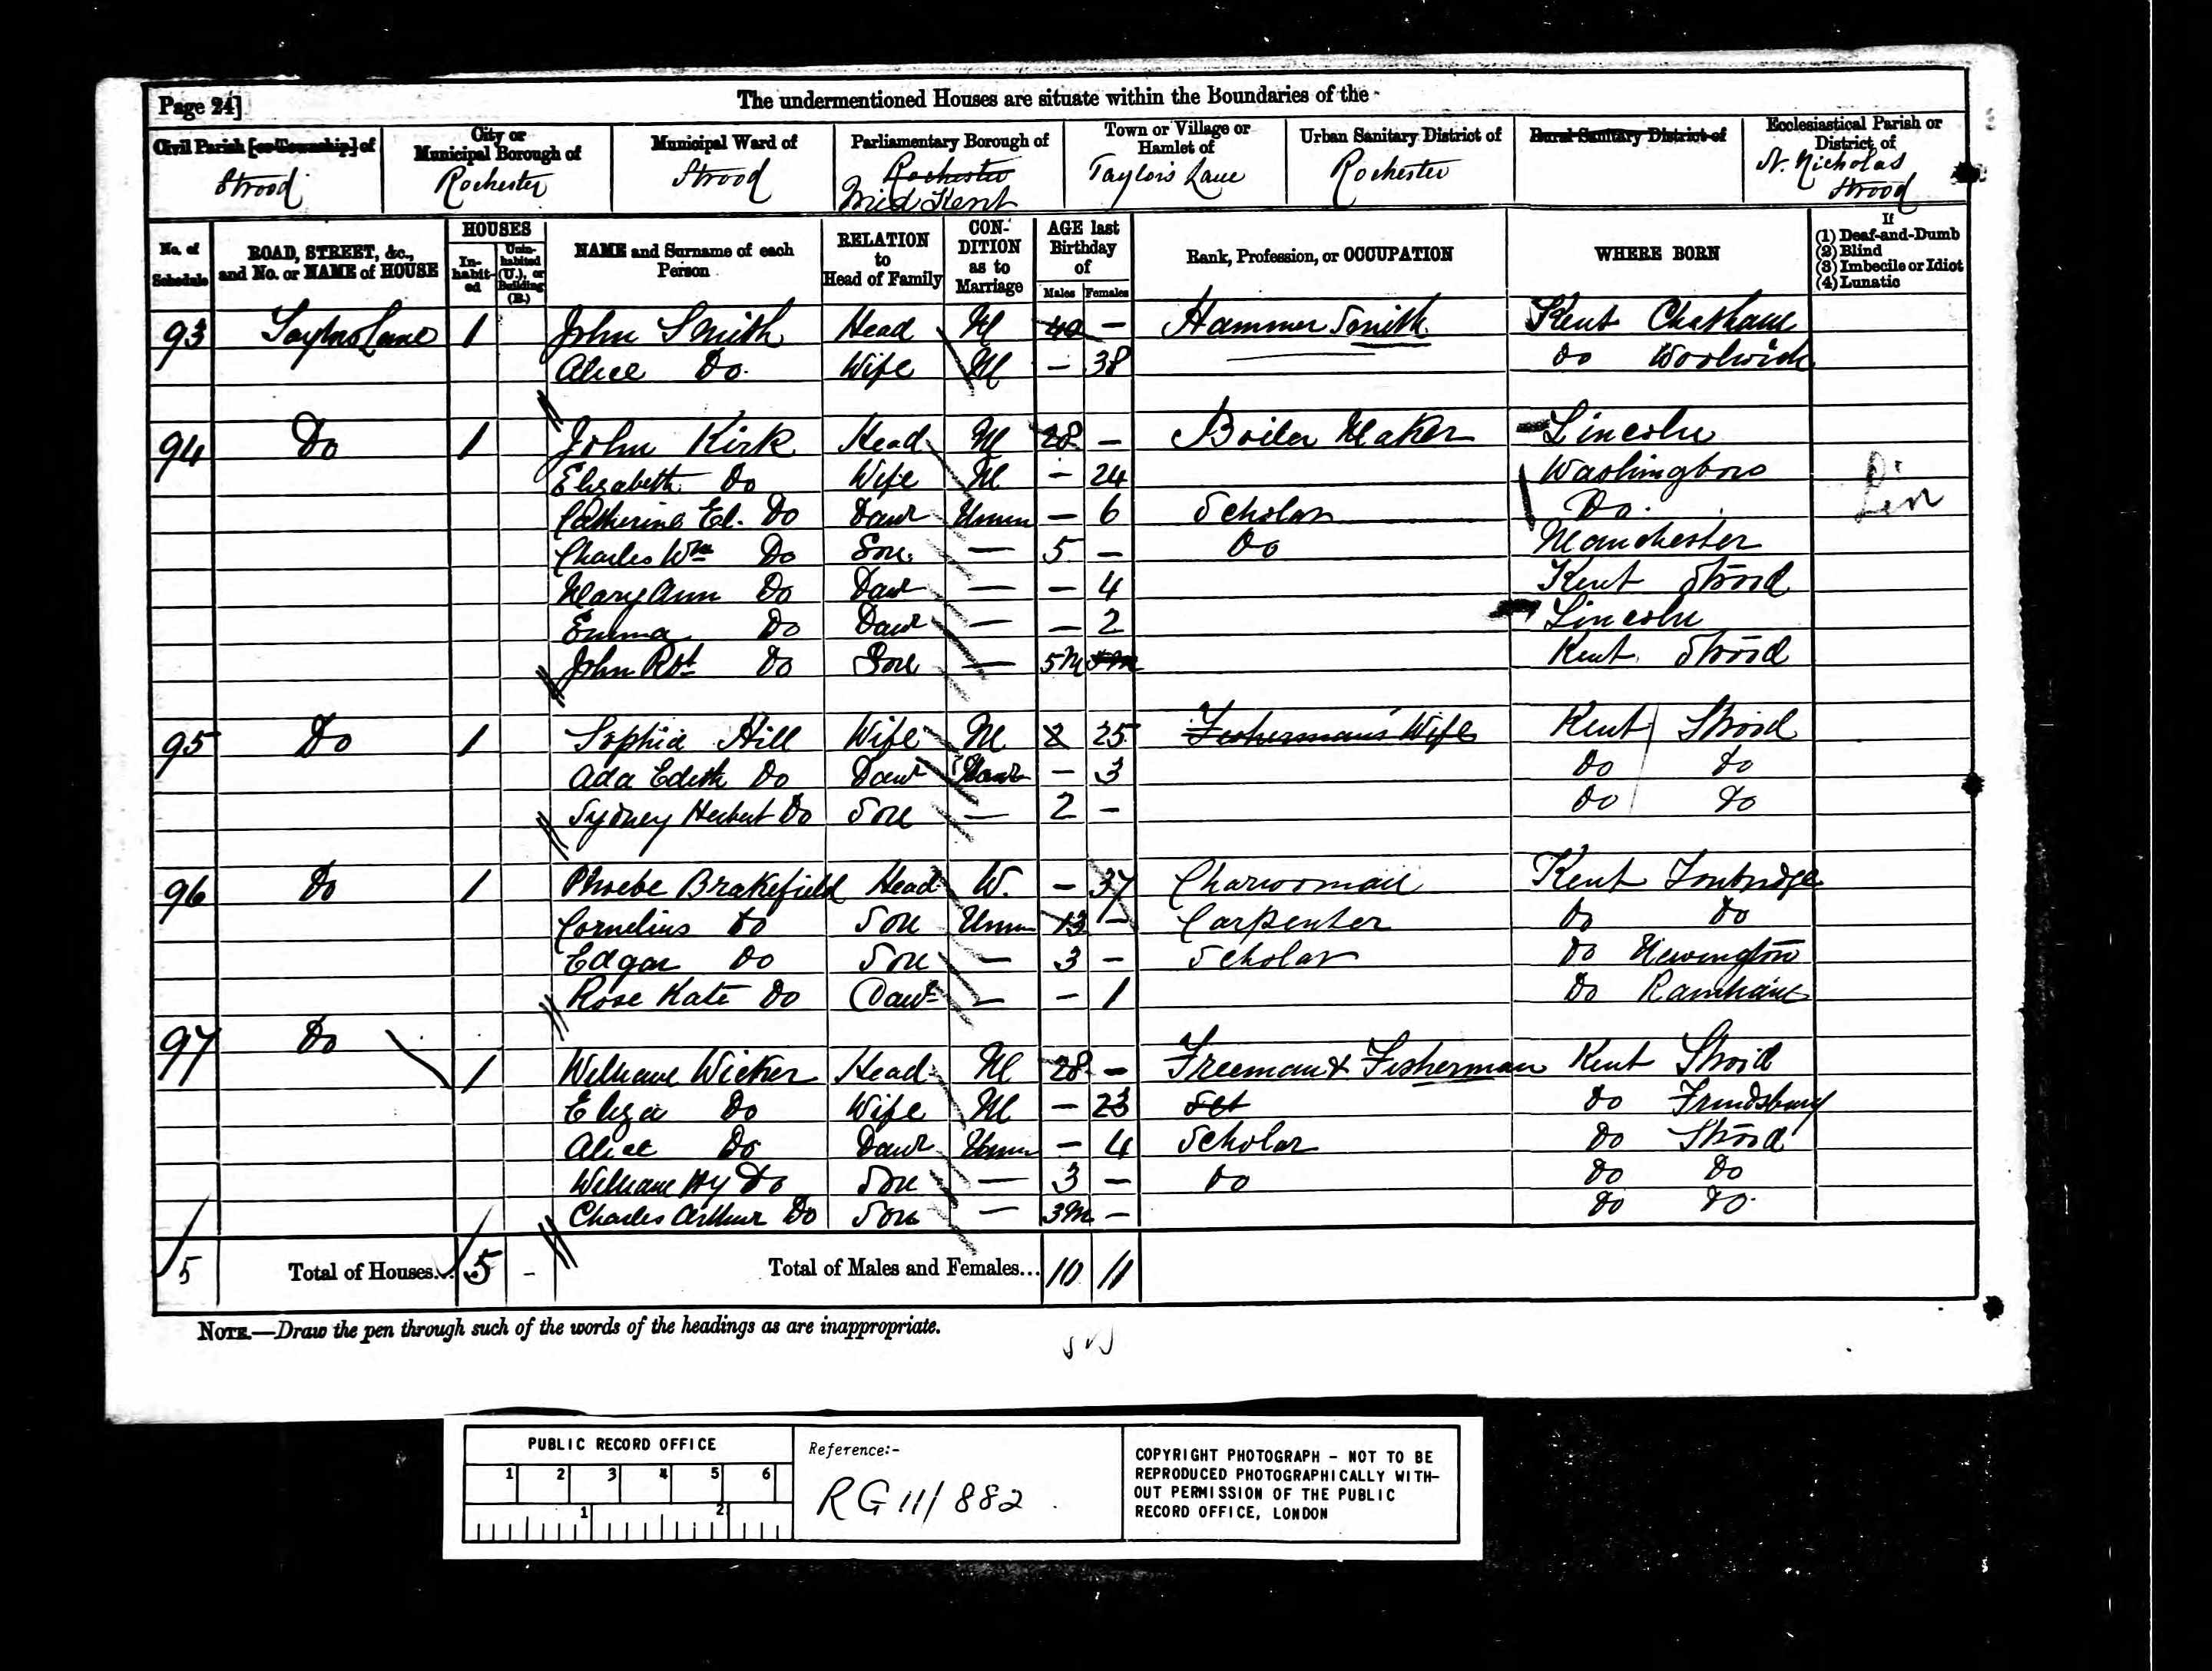 Page 24]
The undermentioned Houses are situate within the Boundaries of the
Civil Parish [or Township] of
City or Municipal Borough of
Municipal Ward of
Parliamentary Borough of
Town or Village or Hamlet of
Urban Sanitary District of
Rural Sanitary District of
Ecclesiastical Parish or District of
Strood
Rochester
Strood
Rochester
Mid Kent
Taylors Lane
Rochester
St. Nicholas
Strood
No. of Schedule
ROAD, STREET, &c., and No. or NAME of HOUSE
HOUSES
In-habit-ed
Unin-habited (U.), or Building (B.)
NAME and Surname of each Person
RELATION to Head of Family
CON-DITION as to Marriage
AGE last Birthday of
Males Females
Rank, Profession, or OCCUPATION
WHERE BORN
If
(1) Deaf-and-Dumb
(2) Blind
(3) Imbecile or Idiot
(4) Lunatic
93 Taylors Lane 1 John Smith Head M 40 – Hammer Smith Kent Chatham
Alice Do. Wife M – 38 Do Woolwich
94 Do 1 John Kirk Head M 28 – Boiler Maker Lincoln
Elizabeth Do Wife M – 24 Washingboro
Catherine El. Do Daur Unm – 6 Scholar Do.
Charles Wm Do Son — 5 – Do Manchester
Mary Ann Do Daur — – 4 Kent Strood
Emma Do Daur — – 2 Lincoln
John Rbt Do Son — 5M 5M Kent Strood
95 Do 1 Sophia Hill Wife M 2 25 Fisherman's Wife Kent Strood
Ada Edith Do Daur – 3 Do Do
Sydney Herbert Do Son — 2 – Do Do
96 Do 1 Phoebe Brakefield Head W. – 37 Charwoman Kent Tonbridge
Cornelius Do Son Unm 13 – Carpenter Do Do
Edgar Do Son — 3 – Scholar Do Newington
Rose Kate Do Daur — – 1 Do Rainham
97 Do 1 William Wicker Head M 28 – Freeman & Fisherman Kent Strood
Eliza Do Wife M – 23 Do Frindsbury
Alice Do Daur Unm – 4 Scholar Do Strood
William Hy Do Son — 3 – Do Do Do
Charles Arthur Do Son — 3M – Do Do.
5 Total of Houses... 5 – Total of Males and Females... 10 11
NOTE.—Draw the pen through such of the words of the headings as are inappropriate.
PUBLIC RECORD OFFICE
1 2 3 4 5 6
1 2
Reference:-
RG 11/882
COPYRIGHT PHOTOGRAPH – NOT TO BE
REPRODUCED PHOTOGRAPHICALLY WITH-
OUT PERMISSION OF THE PUBLIC
RECORD OFFICE, LONDON